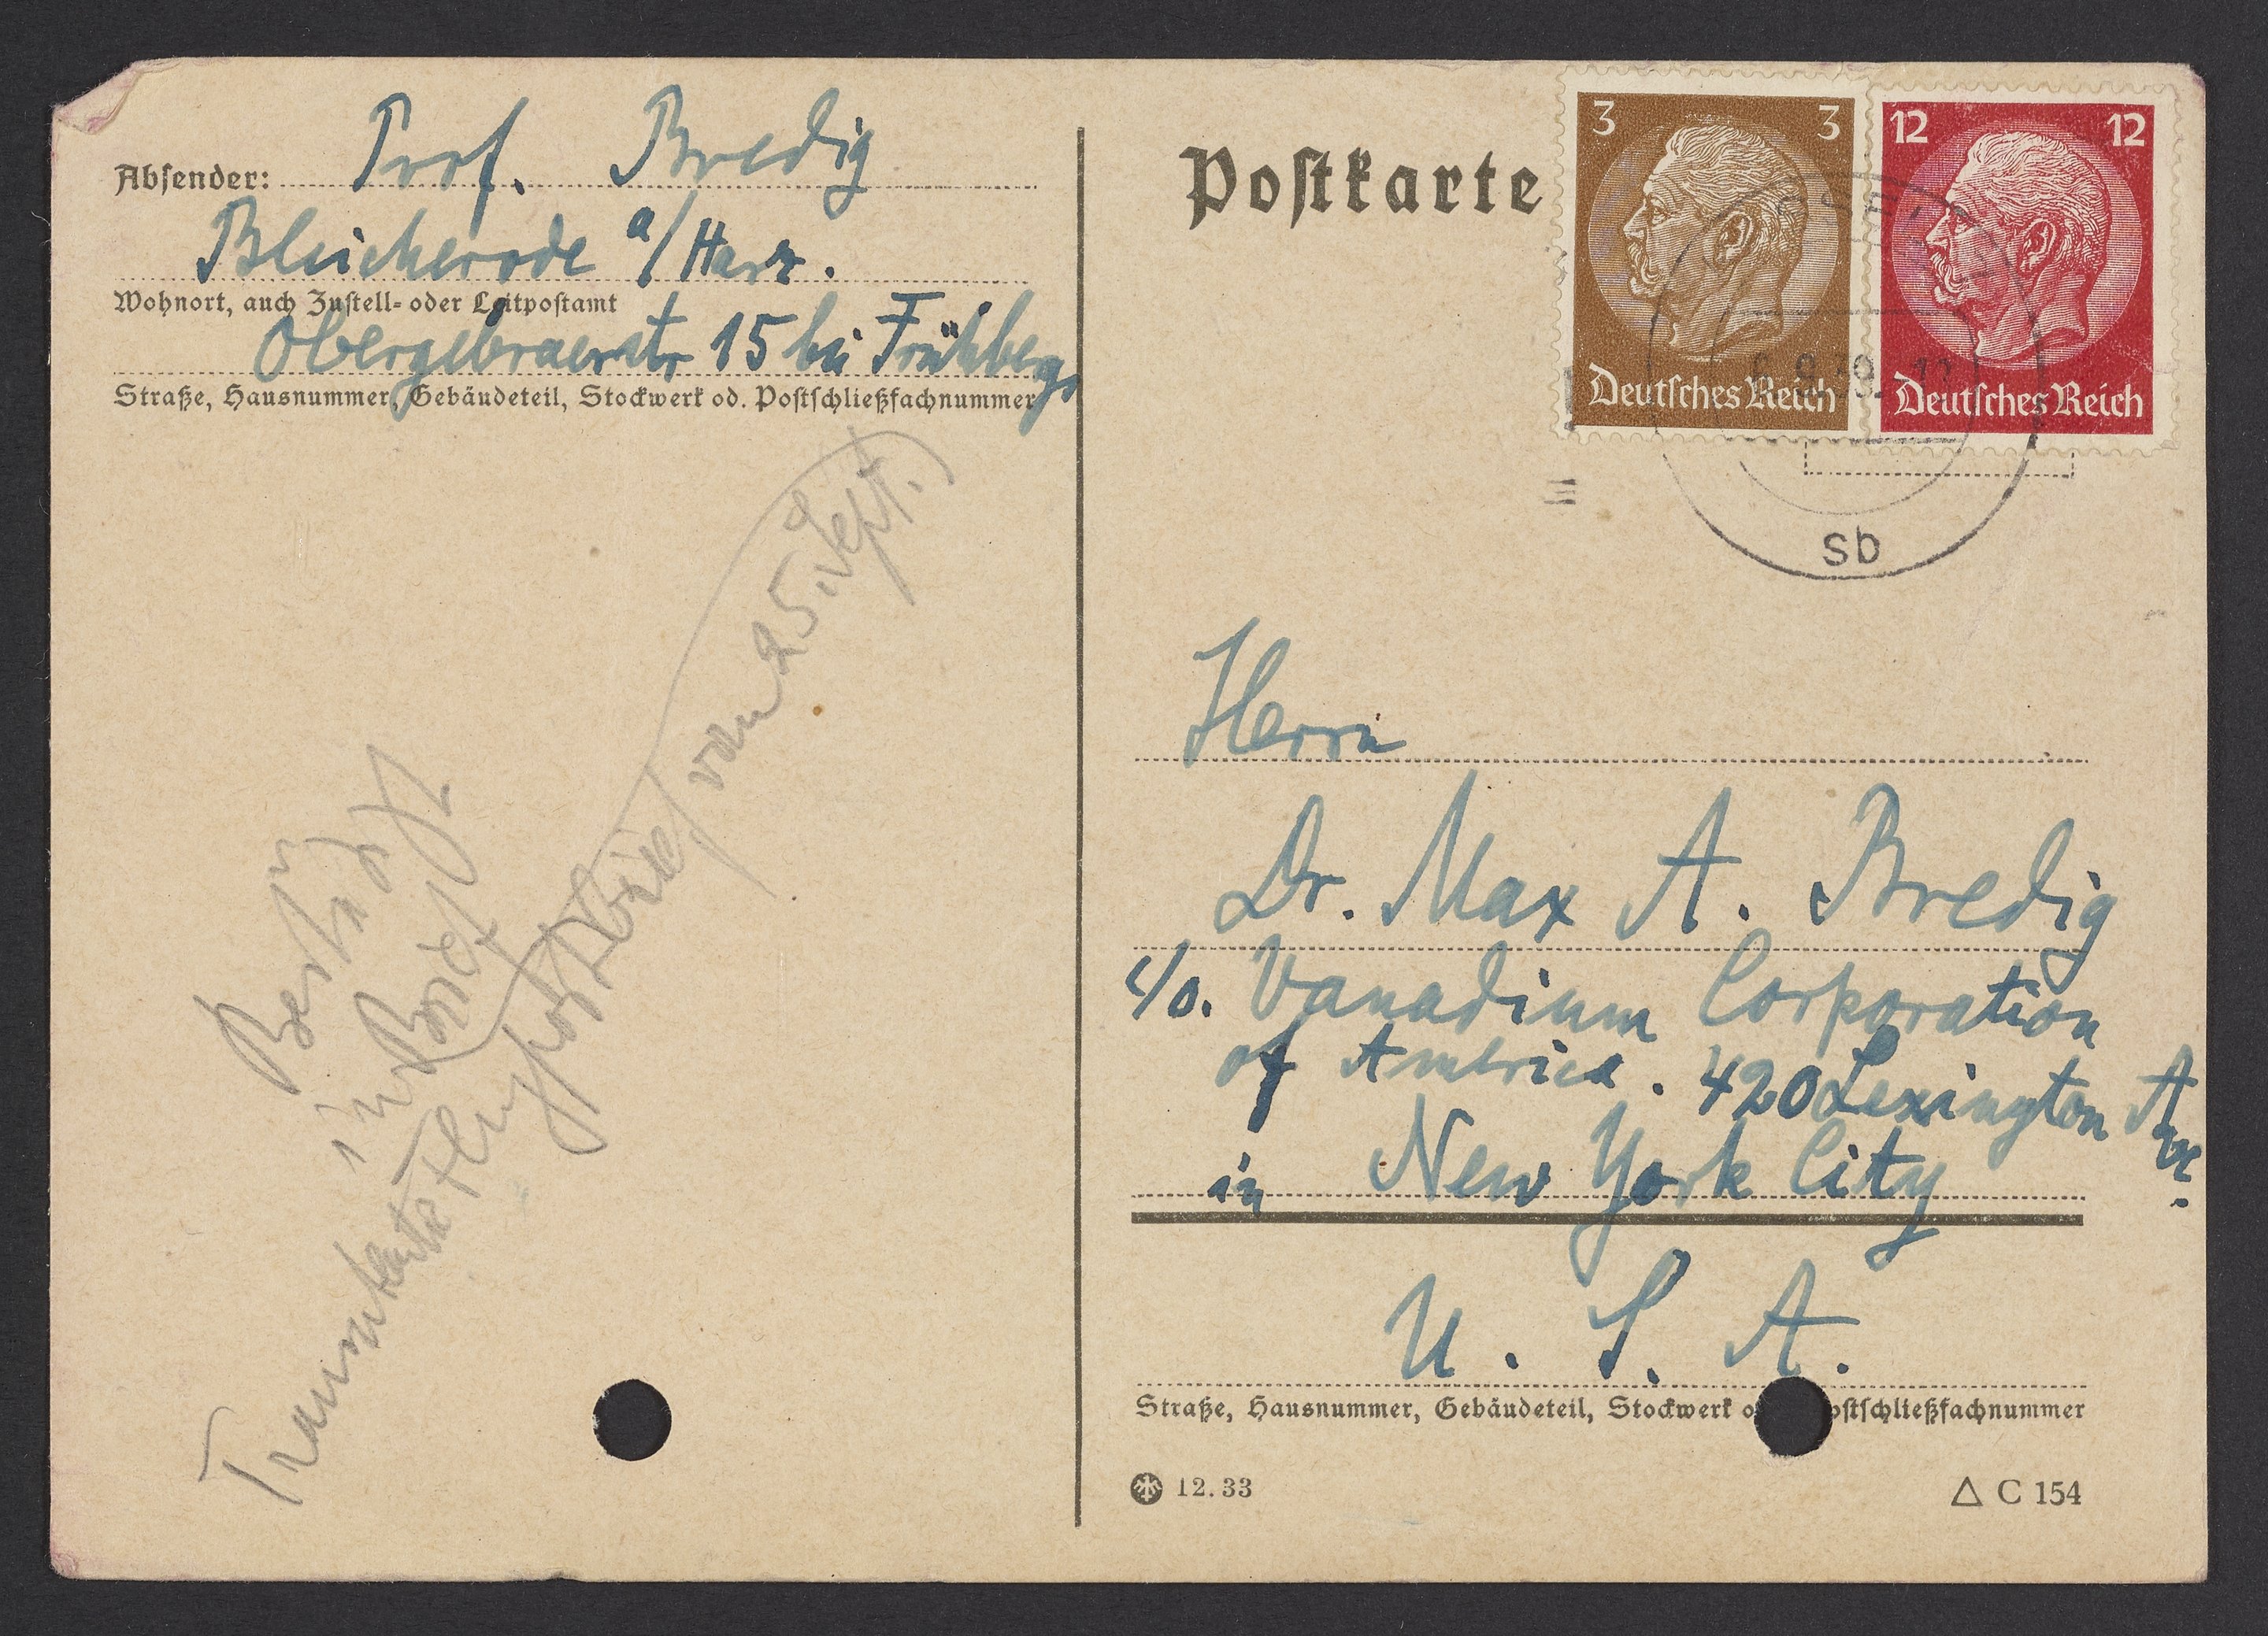 Absender: Prof. Bredig
Bleicherode a/Harz.
Wohnort, auch Zustell- oder Leitpostamt
Obergebraerstr 15 bei Frühbergs
Straße, Hausnummer, Gebäudeteil, Stockwerk od. Postschließfachnummer
Bestätigt
in Brief
Transatlantic Flugpost
vom 25. Sept.)
Postkarte
3 3
Deutsches Reich
12 12
Deutsches Reich
sb
Herrn
Dr. Max A. Bredig
c/o. Vanadium Corporation
of America. 420 Lexington Ave.
in New York City
U. S. A.
Straße, Hausnummer, Gebäudeteil, Stockwerk o ostschließfachnummer
12.33
△ C 154